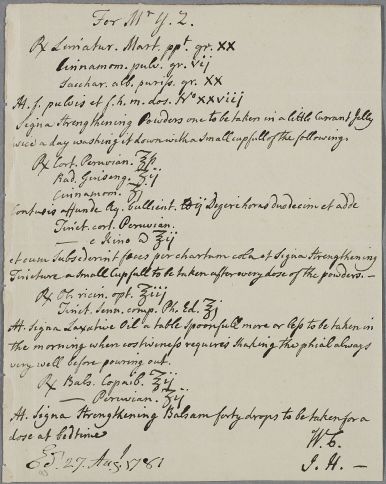 For Mr Y. Z.
℞ Limatur. Mart. ppt. gr. XX
Cinnamom. pulv. gr. vij
Sacchar. alb. puriss. gr. XX
M. f. pulvis et f. h. m. dos. No XXviij
Signa Strengthening Powders one to be taken in a little Currant Jelly
twice a day washing it down with a Small cupfull of the following.
℞ Cort. Peruvian. ℥
Rad. Ginseng. ℥ij
Cinnamom. ʒ
Contusis affunde Aq. bullient. ij Digere horas duodecim et adde
Tinct. cort. Peruvian.
— e Kino ʒij
et cum Subsederint fæces per chartum cola et Signa Strengthening
Tincture a Small Cupfull to be taken after every dose of the powders. —
℞ Ol. ricin. opt. ℥iij
Tinct. Senn. comp. Ph. Ed. ℥j
M. Signa Laxative Oil a table Spoonfull more or less to be taken in
the morning when costiveness requires Shaking the phial always
very well before pouring out.
℞ Bals. Copaib. ʒij
— Peruvian. ʒij
M. Signa Strengthening Balsam forty drops to be taken for a
dose at bedtime
W. C.
Ed. 27. Augt 1781
J. H. —